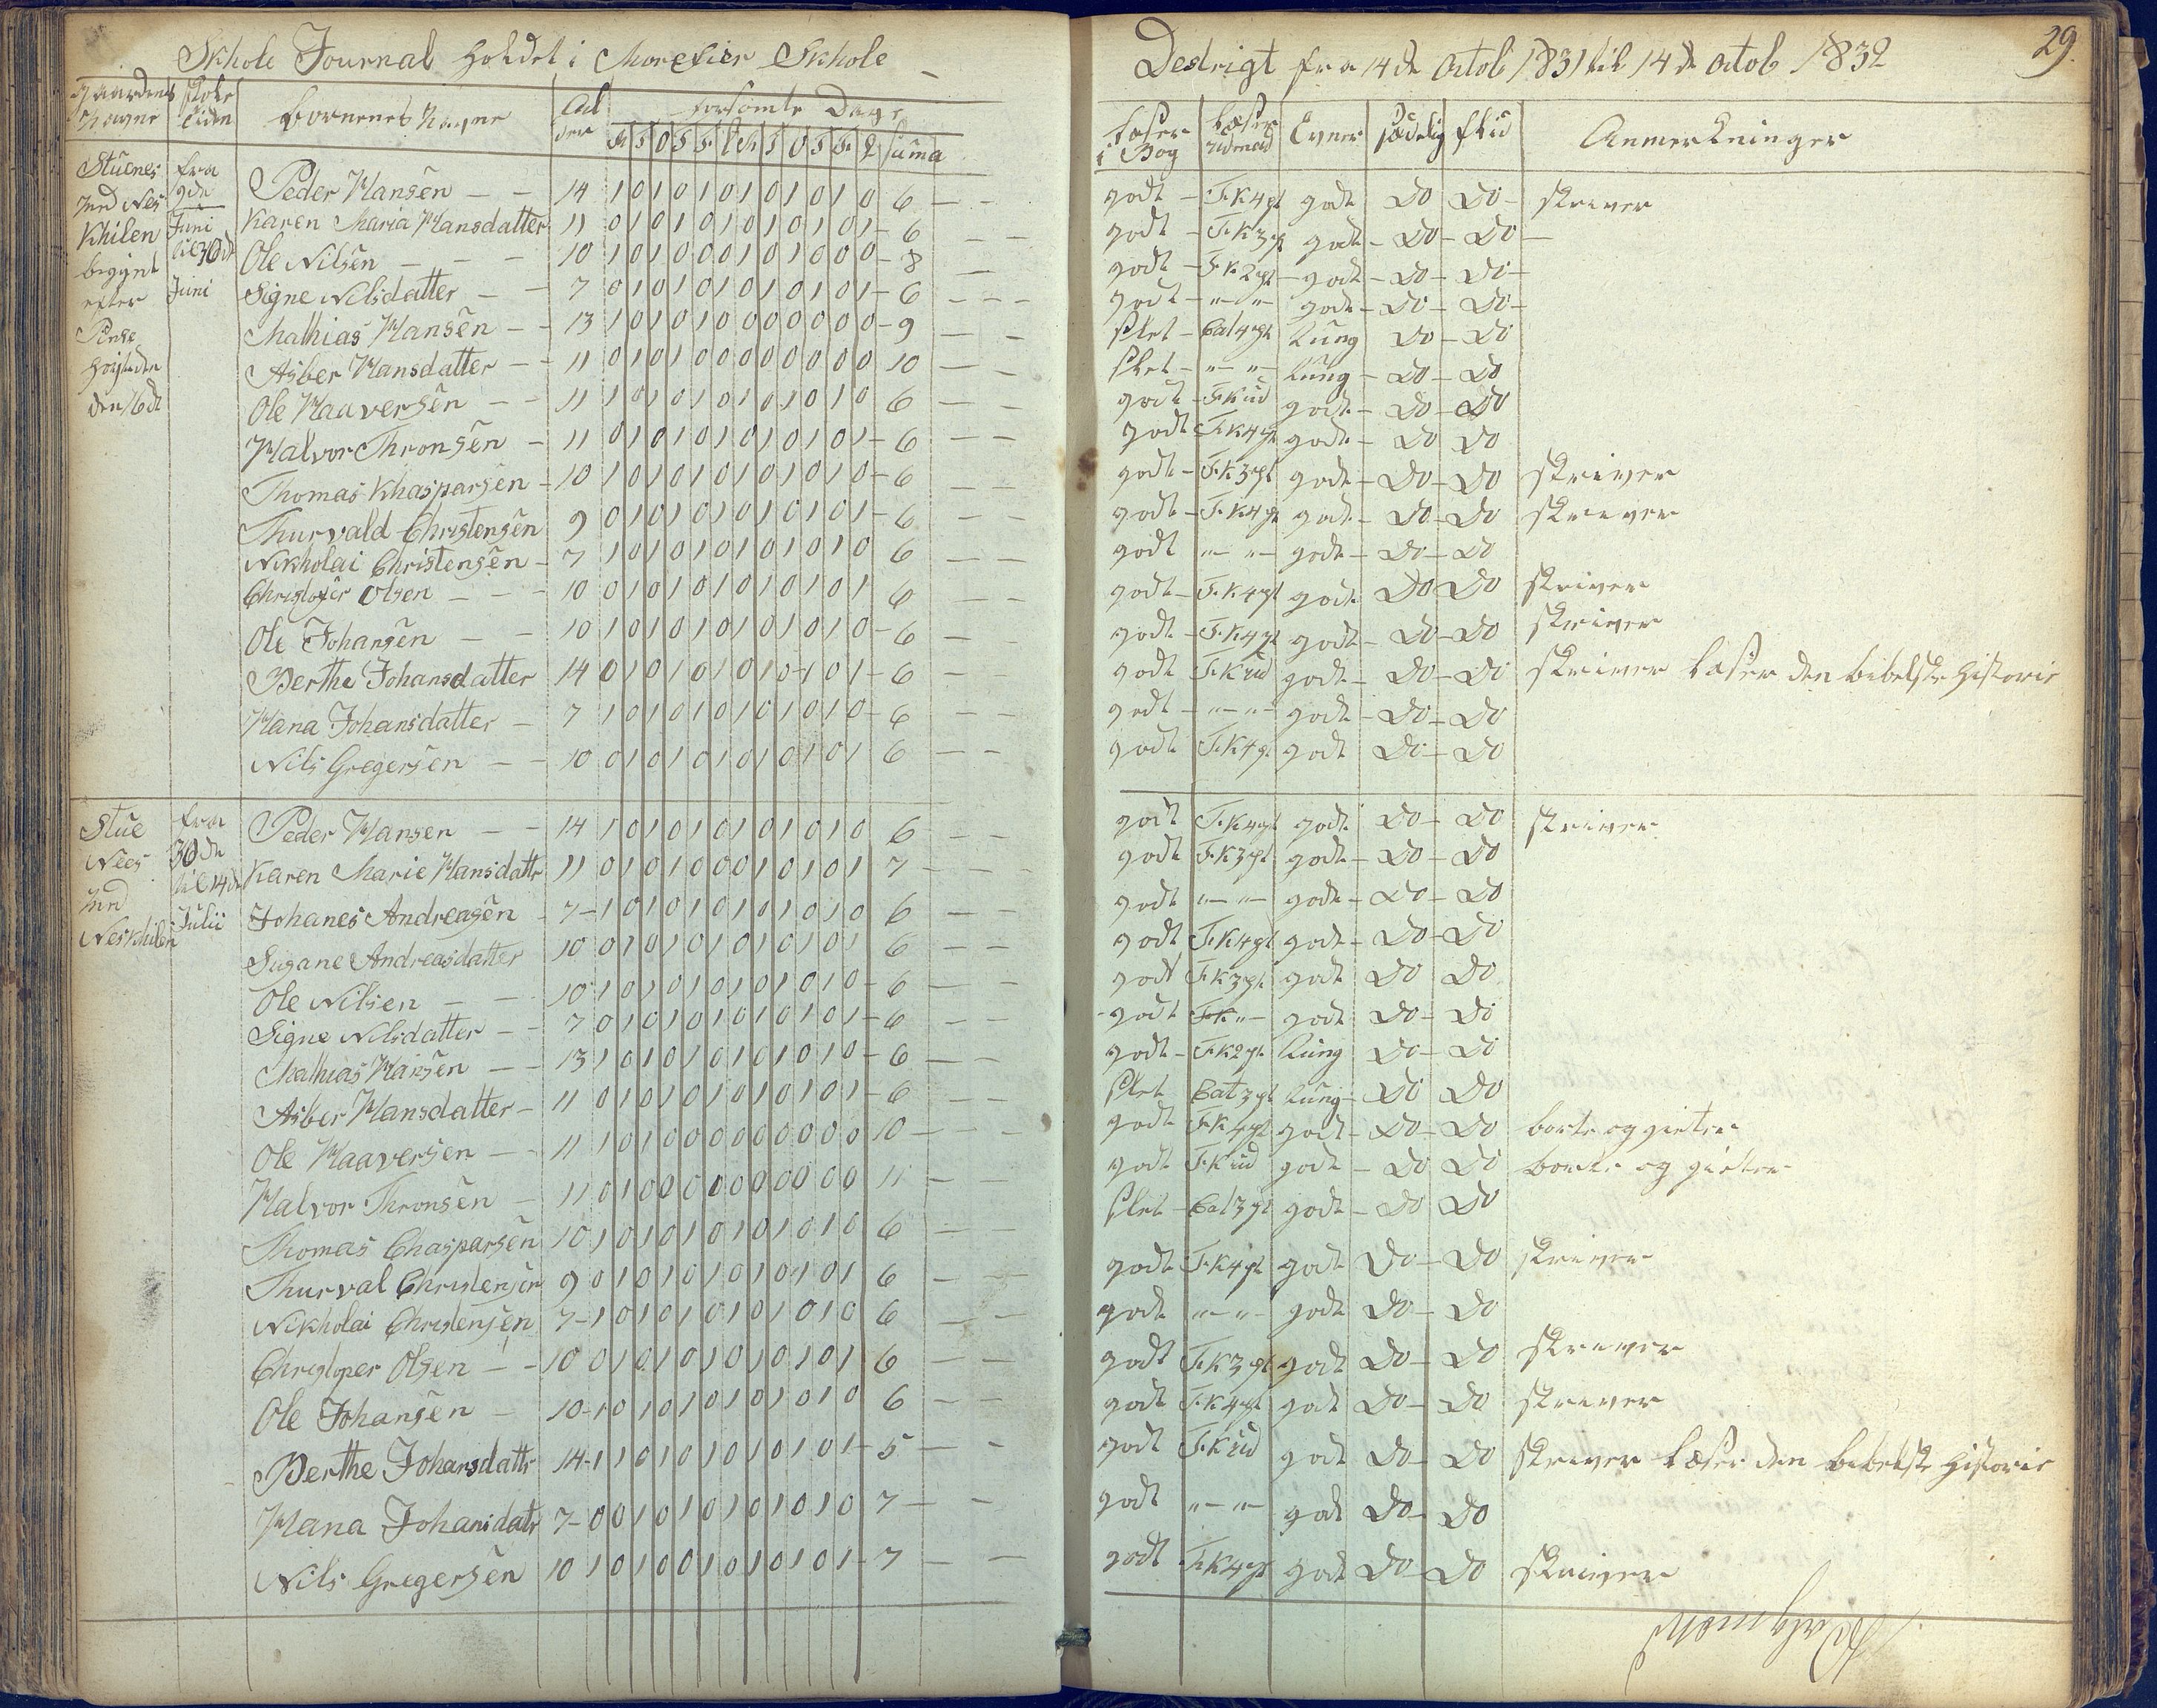 Skhole Journal holdet i Morefier Skhole
Gaardens Navne | Skole tiden | Børnenes Navne | Alder | forsømte Dage | suma
Stuenes | fra | Peder Hansen — — 14 1 0 1 0 1 0 1 0 1 0 1 0 6 — —
Ind Nes | 9de Juni | Karen Maria Hansdatter 11 0 1 0 1 0 1 0 1 0 1 0 1 – 6 — —
Khilen | til 30te | Ole Nilsen — — — 10 1 0 1 0 0 0 1 0 1 0 0 0 – 8 —
begynt | Juni | Signe Nilsdatter — — 7 0 1 0 1 0 1 0 1 0 1 0 1 – 6 — — —
efter | Mathias Hansen — — 13 1 0 1 0 1 0 0 0 0 0 0 0 – 9 — —
Pinse | Asber Hansdatter — — 11 0 1 0 1 0 0 0 0 0 0 0 0 10 — —
høitiden | Ole Haaversen — — 11 1 0 1 0 1 0 1 0 1 0 1 0 6 — —
den 16de | Halvor Thronsen — 11 0 1 0 1 0 1 0 1 0 1 0 1 – 6 — —
Thomas Khasparsen – 10 1 0 1 0 1 0 1 0 1 0 1 0 – 6 — —
Thurvald Christensen 9 0 1 0 1 0 1 0 1 0 1 0 1 – 6 — —
Nikholai Christensen – 7 1 0 1 0 1 0 1 0 1 0 1 0 6 — —
Christofer Olsen — — — 10 0 1 0 1 0 1 0 1 0 1 0 1 6 — —
Ole Johansen — — 10 1 0 1 0 1 0 1 0 1 0 1 0 – 6 — —
Berthe Johansdatter 14 0 1 0 1 0 1 0 1 0 1 0 1 – 6 — —
Hana Johansdatter — 7 1 0 1 0 1 0 1 0 1 0 1 0 – 6 — —
Nils Gregersen — — 10 0 1 0 1 0 1 0 1 0 1 0 1 6 — —
Stue | fra | Peder Hansen — — 14 1 0 1 0 1 0 1 0 1 0 1 0 6 — —
Nees | 30de til 14de | Karen Marie Hansdattr 11 0 1 0 1 0 0 0 1 0 1 0 1 7 — —
Ind | Julii | Johanes Andreasen – 7 – 1 0 1 0 1 0 1 0 1 0 1 0 6 — —
Neskhilen | Susane Andreasdatter 10 0 1 0 1 0 1 0 1 0 1 0 1 6 — —
Ole Nilsen — — 10 1 0 1 0 1 0 1 0 1 0 1 0 – 6 — —
Signe Nilsdatter — — 7 0 1 0 1 0 1 0 1 0 1 0 1 – 6 — —
Mathias Hansen — — 13 1 0 1 0 1 0 1 0 1 0 1 0 – 6 — —
Asber Hansdatter – 11 0 1 0 1 0 1 0 1 0 1 0 1 – 6 — —
Ole Haaversen — — 11 1 0 1 0 0 0 0 0 0 0 0 0 10 — —
Halvor Thronsen — 11 0 1 0 0 0 0 0 0 0 0 0 0 11 — —
Thomas Chasparsen 10 1 0 1 0 1 0 1 0 1 0 1 0 6 — —
Thurval Christensen 9 0 1 0 1 0 1 0 1 0 1 0 1 6 — —
Nikholai Christensen 7 – 1 0 1 0 1 0 1 0 1 0 1 0 6 — —
Christoper Olsen — – 10 0 1 0 1 0 1 0 1 0 1 0 1 6 — —
Ole Johansen — 10 – 1 0 1 0 1 0 1 0 1 0 1 0 6 — —
Berthe Johansdattr 14 – 1 1 0 1 0 1 0 1 0 1 0 1 – 5 — —
Hana Johansdatr 7 – 0 0 1 0 1 0 1 0 1 0 1 0 7 — —
Nils Gregersen 10 1 0 1 0 0 1 0 1 0 1 0 1 – 7 — —
Destrigt fra 14de Octob 1831 til 14de Octob 1832
29.
Læser i Bog | Læser udenad | Evner | sædelig | flid | Anmerkninger
godt – F.K 4pt godt Do Do – skriver
godt – F.K 3pt godt – Do – Do —
godt – F.K 2pt – godt – Do – Do –
godt – „ – „ – godt – Do – Do –
slet – Cat 4pt tung Do – Do
slet – „ – „ – tung – Do – Do
godt – F.K ud godt – Do – Do
godt F.K 4pt godt – Do Do
godt – F.K 3pt godt – Do – Do skriver
godt – F.K 4pt godt – Do – Do skriver
godt „ – „ – godt – Do – Do
godt – F.K 4pt godt Do Do skriver
godt – F.K 4pt godt – Do – Do skriver
godt F.K ud godt – Do – Do skriver læser den bibelske Historie
godt – „ – „ – godt – Do – Do
godt F.K 4pt godt Do – Do
godt F.K 4pt godt Do – Do skriver
godt F.K 3pt godt – Do – Do
godt „ – „ – godt – Do – Do
godt F.K 4pt godt – Do – Do
godt F.K 3pt godt Do Do
godt „ – godt Do – Do
godt – F.K 2pt tung Do – Do
slet Cat 3pt tung – Do Do
godt F.K 4pt godt – Do – Do borte og gieter
godt F.K ud godt – Do Do borte og gieter
slet – Cat 3pt godt – Do Do
godt F.K 4pt godt Do – Do skriver
godt „ – „ – godt Do – Do
godt F.K 3pt godt Do – Do skriver
godt F.K 4pt godt Do – Do skriver
godt F.K ud godt Do – Do skriver læser den bibelske Historie
godt „ – „ – godt Do – Do
godt F.K 4pt godt Do – Do skriver